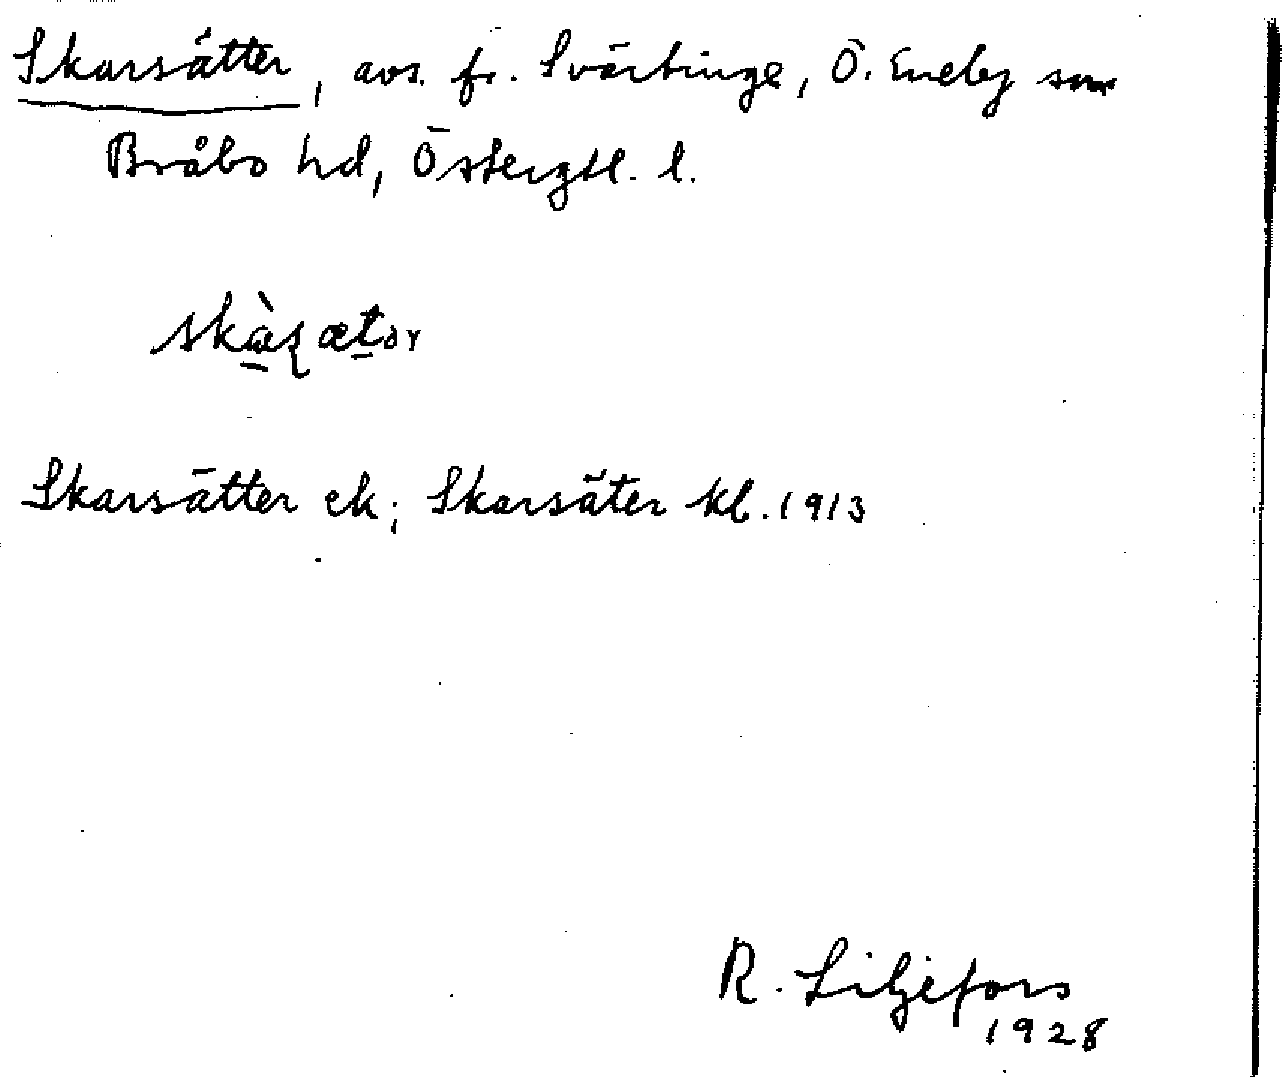 Skarsätter, avs. fr. Svärtinge, Ö. Eneby sn
Bråbo hd, Östergtl. l.
Skarsätter ek; Skarsäter kl. 1913
R. Liljefors
1928